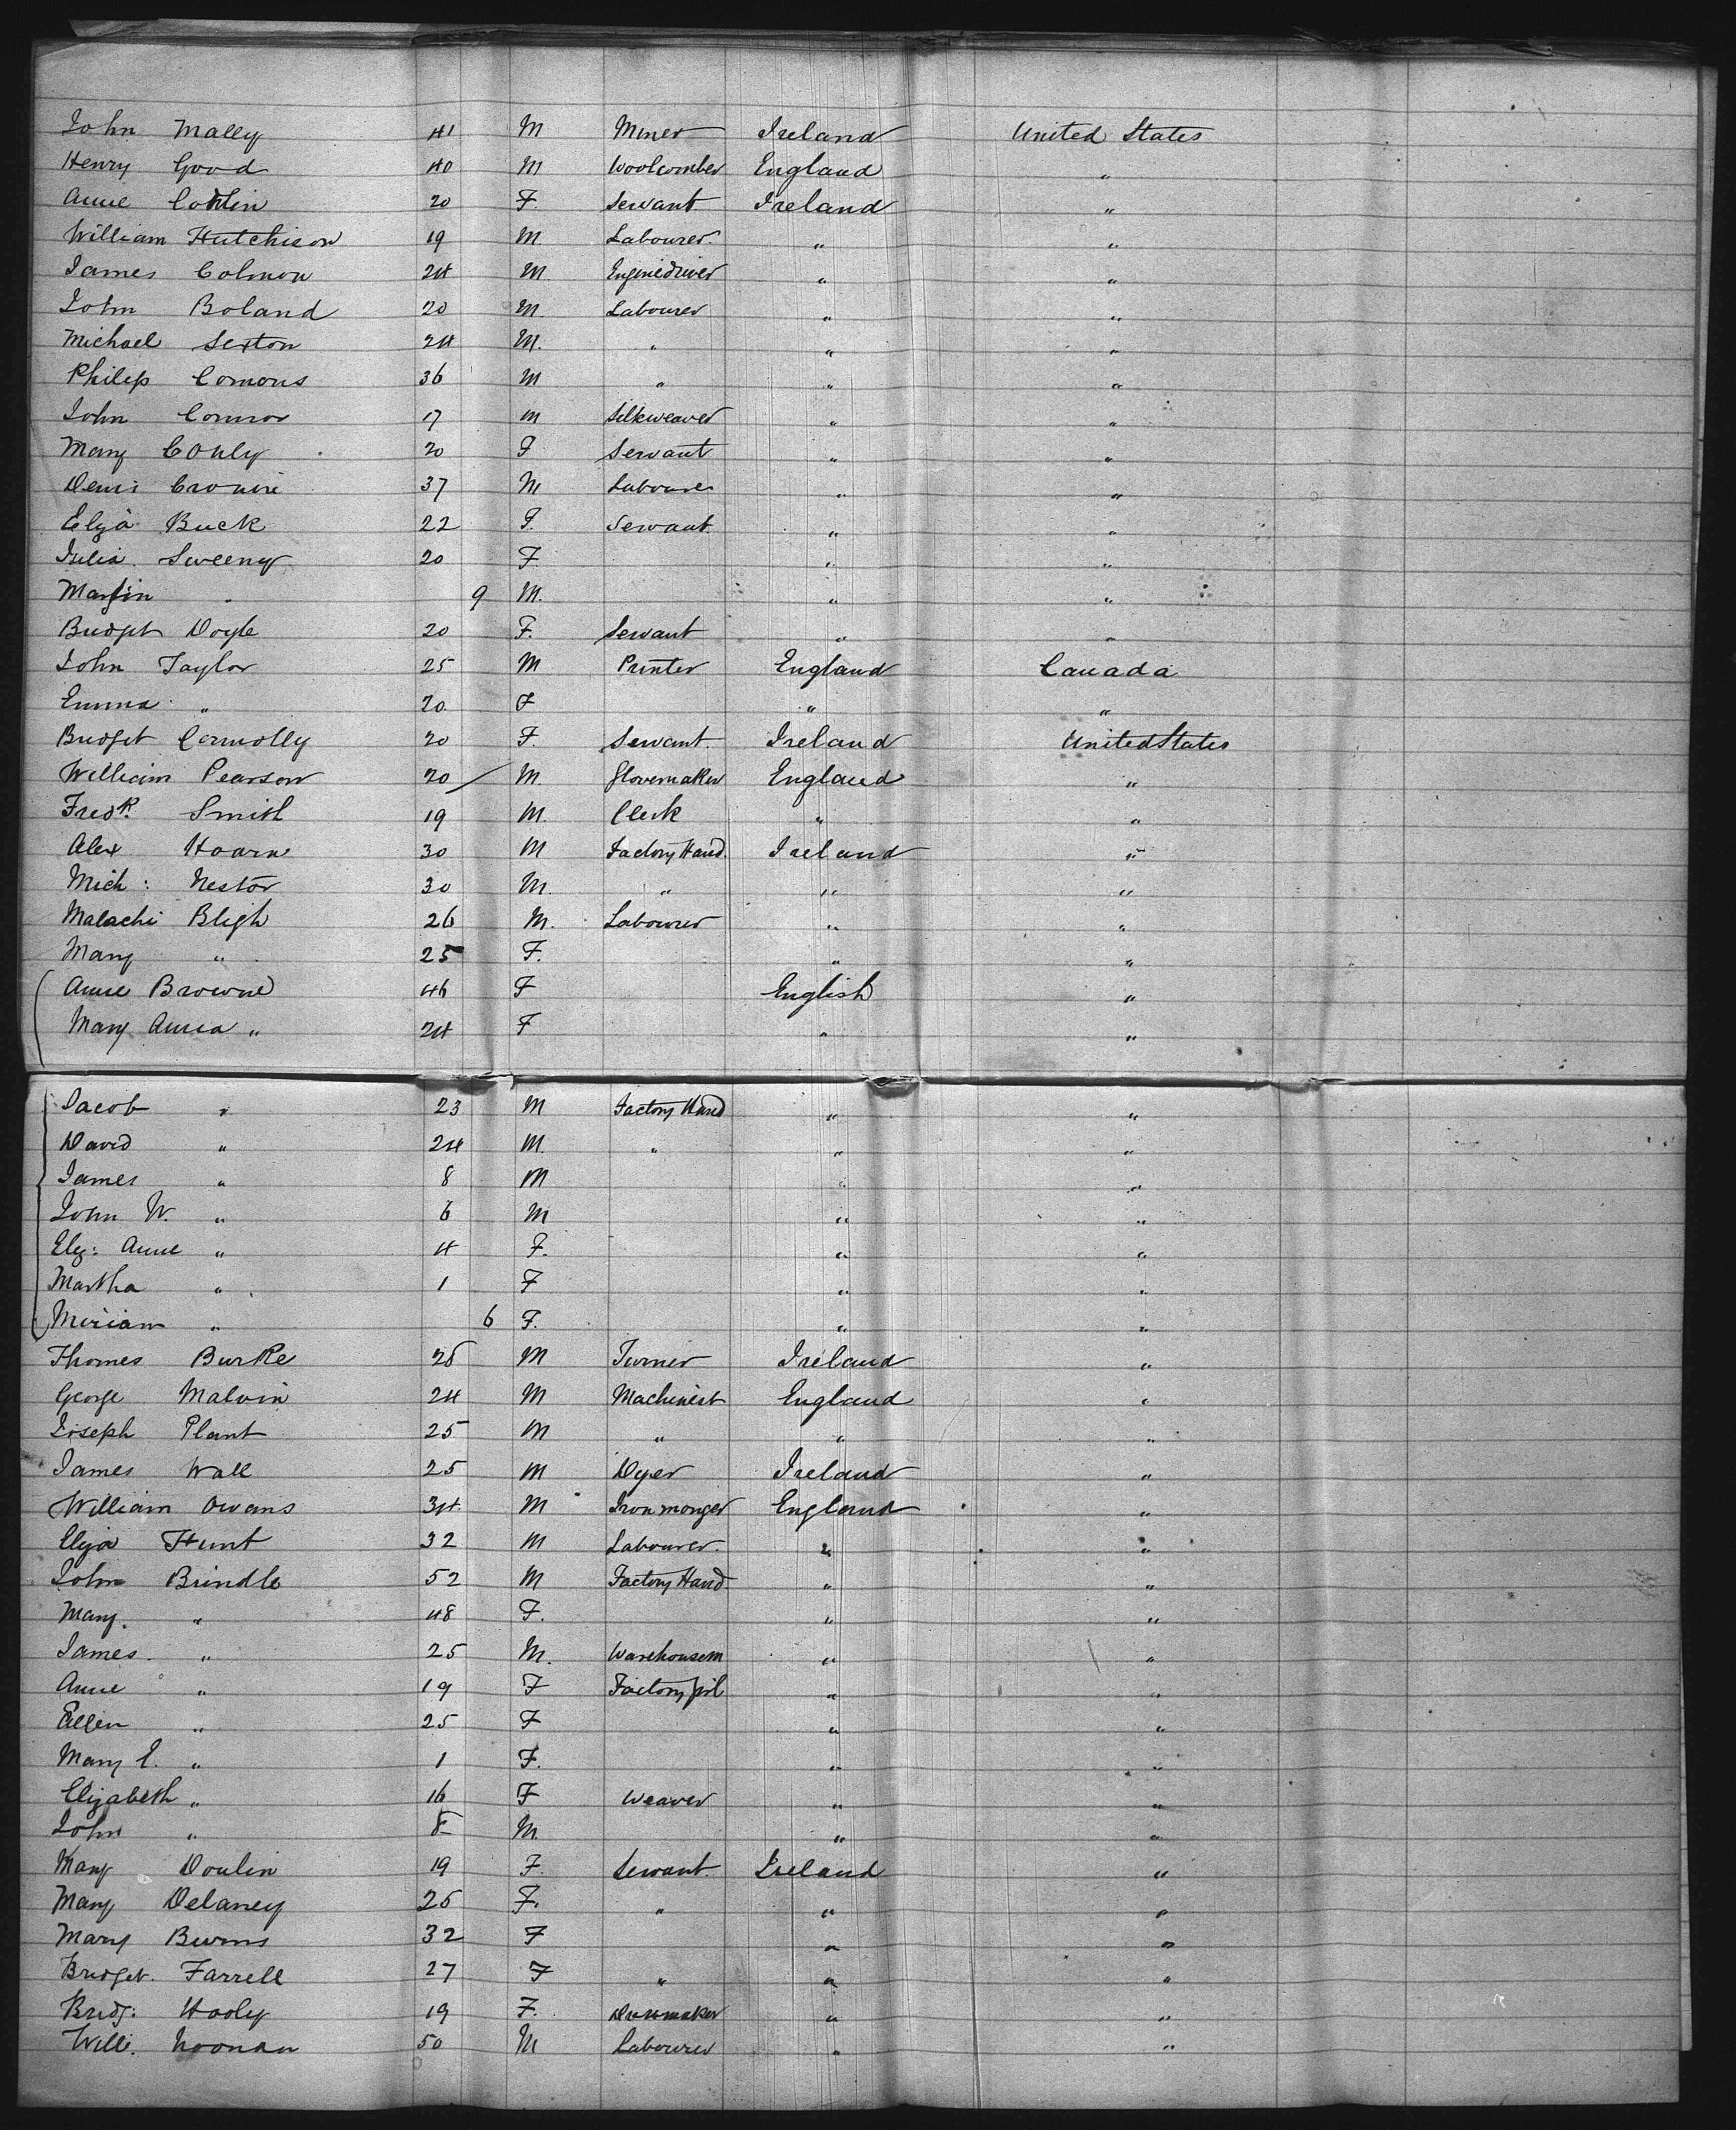 John Mally 41 M Miner Ireland United States
Henry Good 40 M Woolcomber England "
Anne 20 F. Servant Ireland "
William Hutchison 19 M. Labourer. " "
James Colmon 24 M. Enginedriver " "
John Boland 20 M. Labourer " "
Michael Sexton 24 M. " " "
Philip Comons 36 M " " "
John Connor 17 M Silkweaver " "
Mary Conly 20 F Servant " "
Denis 37 M Labourer " "
Elija Buck 22 F. Servant. " "
Julia. Sweeny 20 F " "
Martin " 9 M. " "
Bridget Doyle 20 F. Servant " "
John Taylor 25 M Printer England Canada
Emma " 20. F " "
Bridget Connolly 20 F. Servant. Ireland United States
William Pearson 20 / M. Glovemaker England "
Fredk. Smith 19 M. Clerk " "
Alex Hoarn 30 M Factory Hand. Ireland "
Mich: Nestor 30 M. " " "
Malachi Bligh 26 M. Labourer " "
Mary " 25 F. " "
Anne Browne 46 F English "
Mary Anna " 24 F " "
Jacob " 23 M Factory Hand " "
David " 24 M. " " "
James " 8 M " "
John W. " 6 M " "
Elz: Anne " 4 F. " "
Martha " 1 F " "
Miriam " 6 F. " "
Thomes Burke 25 M Turner Ireland "
George Malvin 24 M Machinist England "
Joseph Plant 25 M " " "
James Wall 25 M Dyer Ireland "
William Owans 34. M Iron monger England "
Elija Hunt 32 M Labourer. " "
John Brindle 52 M Factory Hand. " "
Mary. " 48 F. " "
James. " 25 M. Warehousem " "
Anne " 19 F Factory girl " "
Ellen " 25 F " "
Mary E. " 1 F. " "
Elizabeth " 16 F Weaver " "
John " 8 M. " "
Mary Doulin 19 F. Servant. Ireland "
Mary Delaney 25 F. " " "
Mary Burns 32 F " "
Bridget. Farrell 27 F " " "
Bridg: Hooly 19 F. Dressmaker " "
Willi. Noonan 50 M Labourer " "